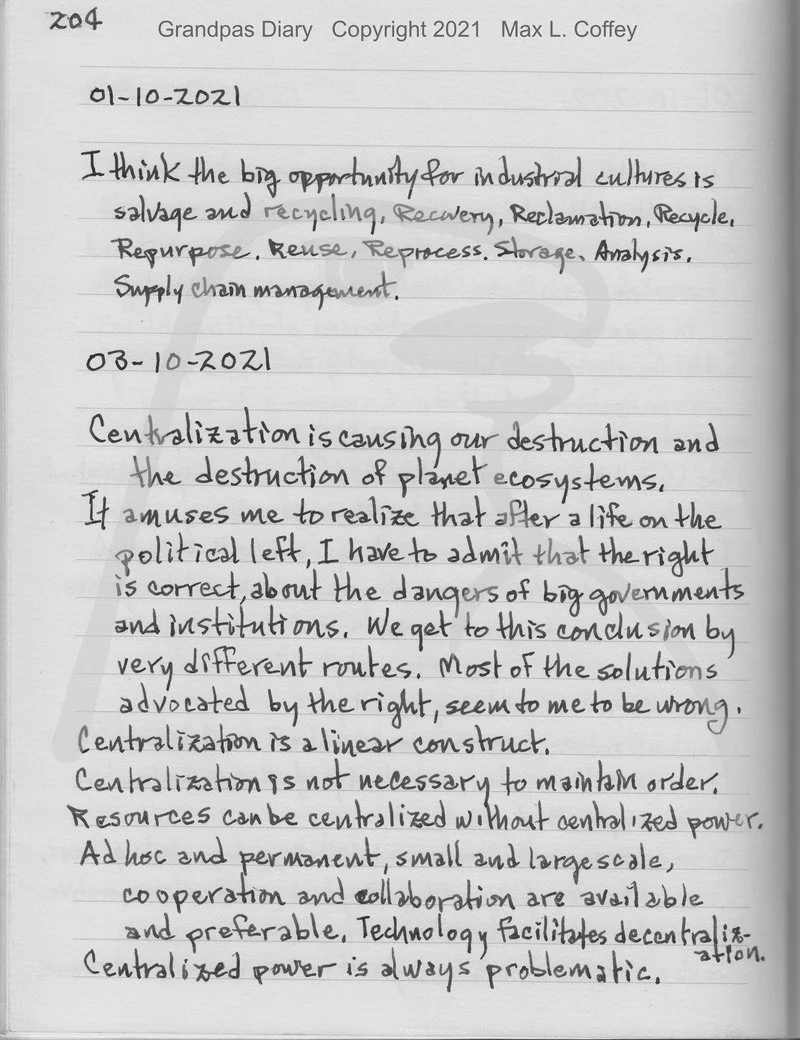 204
Grandpas Diary Copyright 2021 Max L. Coffey
01-10-2021
I think the big opportunity for industrial cultures is
salvage and recycling, Recovery, Reclamation, Recycle,
Repurpose, Reuse, Reprocess. Storage, Analysis,
Supply chain management.
03-10-2021
Centralization is causing our destruction and
the destruction of planet ecosystems.
It amuses me to realize that after a life on the
political left, I have to admit that the right
is correct, about the dangers of big governments
and institutions. We get to this conclusion by
very different routes. Most of the solutions
advocated by the right, seem to me to be wrong.
Centralization is a linear construct.
Centralization is not necessary to maintain order.
Resources can be centralized without centralized power.
Ad hoc and permanent, small and large scale,
cooperation and collaboration are available
and preferable. Technology facilitates decentraliz-
ation.
Centralized power is always problematic.